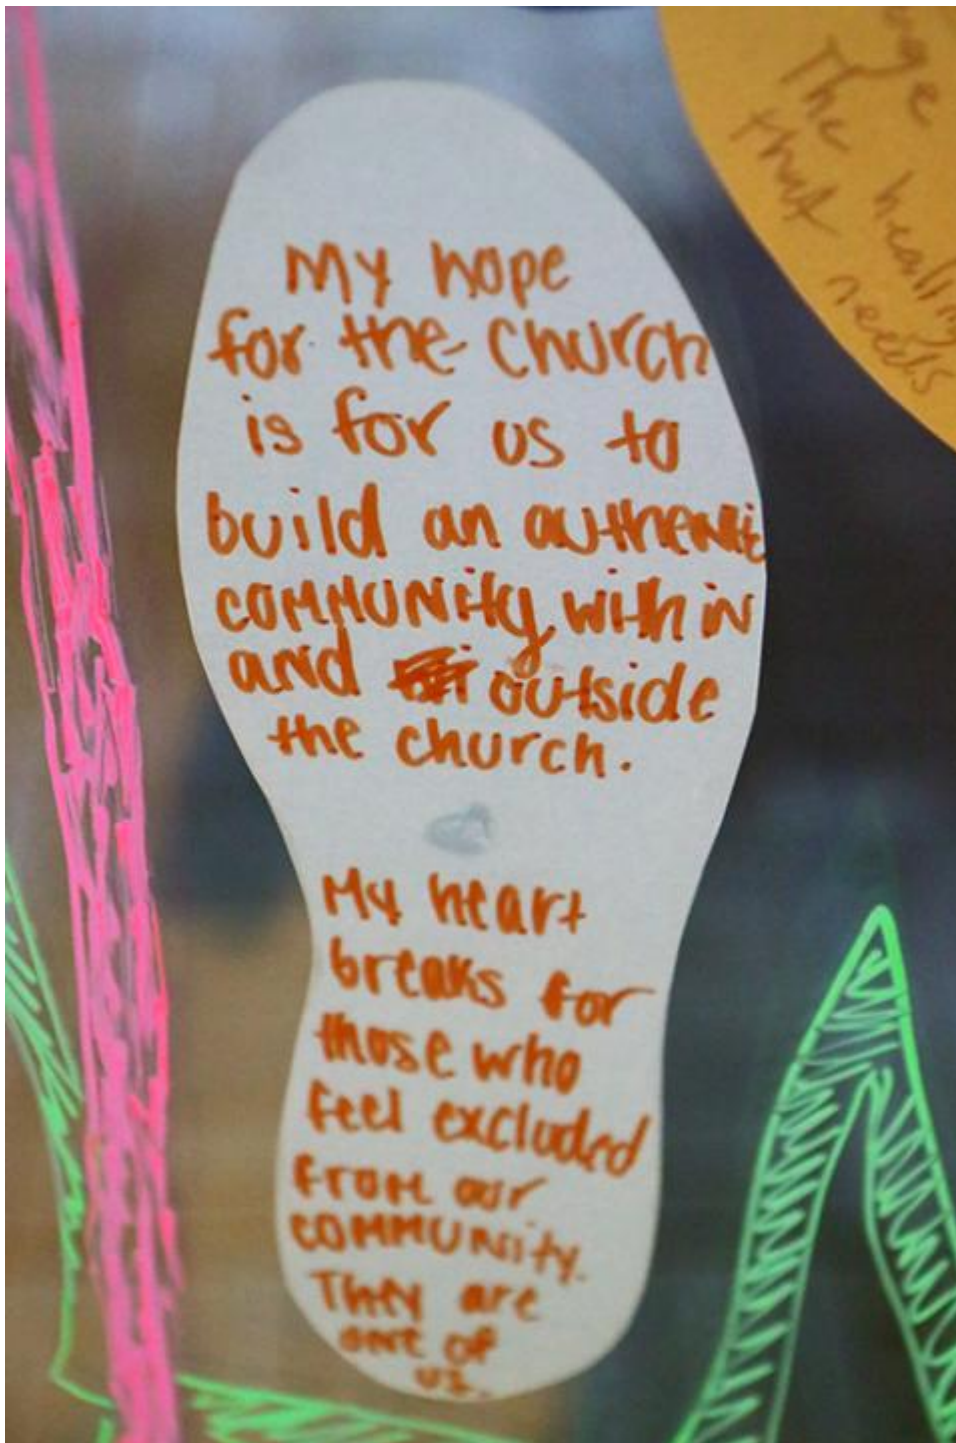 My hope
for the church
is for us to
build an authentic
community within
and outside
the church.
My heart
breaks for
those who
feel excluded
from our
community.
They are
one of
us.
The
that healing
needs